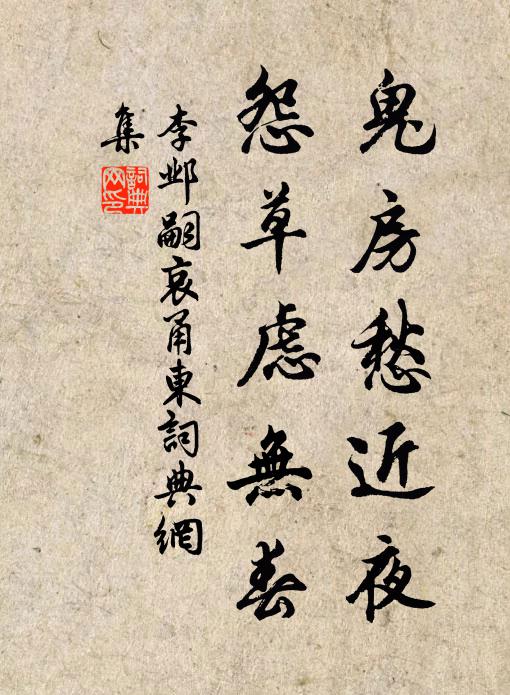 鬼房愁近夜
怨草慮無春
李邺嗣哀甬東詞典網
集
詞典網印